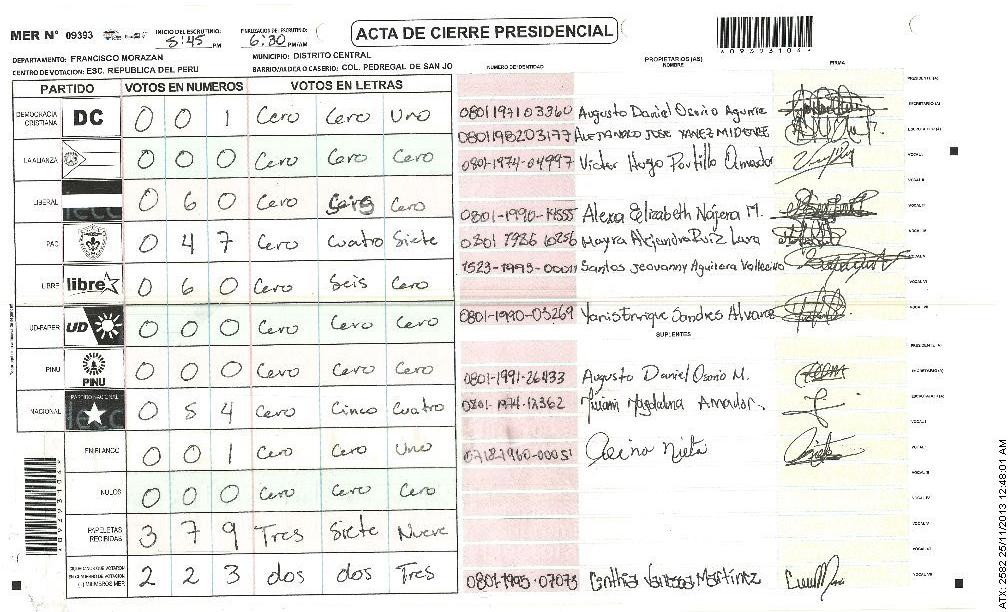 MER N° 09393 INICIO DEL ESCRUTINIO: 5:45 PM FINALIZACION DE ESCRUTINIO: 6:30 PM/AM
ACTA DE CIERRE PRESIDENCIAL
DEPARTAMENTO: FRANCISCO MORAZAN MUNICIPIO: DISTRITO CENTRAL
CENTRO DE VOTACION: ESC. REPUBLICA DEL PERU BARRIO/ALDEA O CASERIO: COL. PEDREGAL DE SAN JO
PARTIDO VOTOS EN NUMEROS VOTOS EN LETRAS
DEMOCRACIA CRISTIANA DC 0 0 1 Cero Cero Uno
LA ALIANZA 0 0 0 Cero Cero Cero
LIBERAL 0 6 0 Cero Seis Cero
PAC 0 4 7 Cero Cuatro Siete
LIBRE libre 0 6 0 Cero Seis Cero
UD-FAPER UD 0 0 0 Cero Cero Cero
PINU PINU 0 0 0 Cero Cero Cero
NACIONAL PARTIDO NACIONAL 0 5 4 Cero Cinco Cuatro
EN BLANCO 0 0 1 Cero Cero Uno
NULOS 0 0 0 Cero Cero Cero
PAPELETAS RECIBIDAS 3 7 9 Tres Siete Nueve
2 2 3 dos dos Tres
NUMERO DE IDENTIDAD PROPIETARIOS (AS) NOMBRE FIRMA
PRESIDENTE (A)
0801197103360 Augusto Daniel Osorio Aguirre SECRETARIO (A)
0801198203177 ALEJANDRO JOSE YANEZ
0801-1974-04997 Victor Hugo Portillo Amador VOCAL I
VOCAL II
0801-1990-14555 Alexa Elizabeth Nájera M.
Mayra Alejandra Ruiz Lara
1523-1993-00011 Santos Jeovanny Aguilera
0801-1990-03269 Yanis Enrique Sandres Alvarez
SUPLENTES
PRESIDENTE (A)
0801-1991-26433 Augusto Daniel Osorio M.
0801-1974-12362 Miriam Magdalena Amador.
Nieto
0801-1995-07073 Cinthia Vanessa Martínez
ATX: 2582 25/11/2013 12:48:01 AM